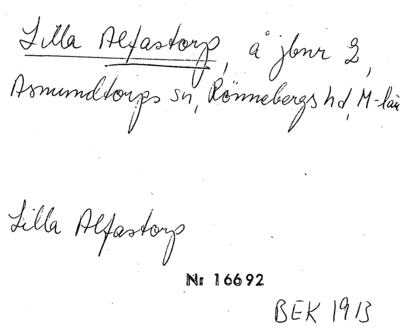 Lilla Alfastorp, å jbnr 2,
Asmundtorps sn, Rönnebergs hd, M-län
Lilla Alfastorp
Nr 16692
BEK 1913